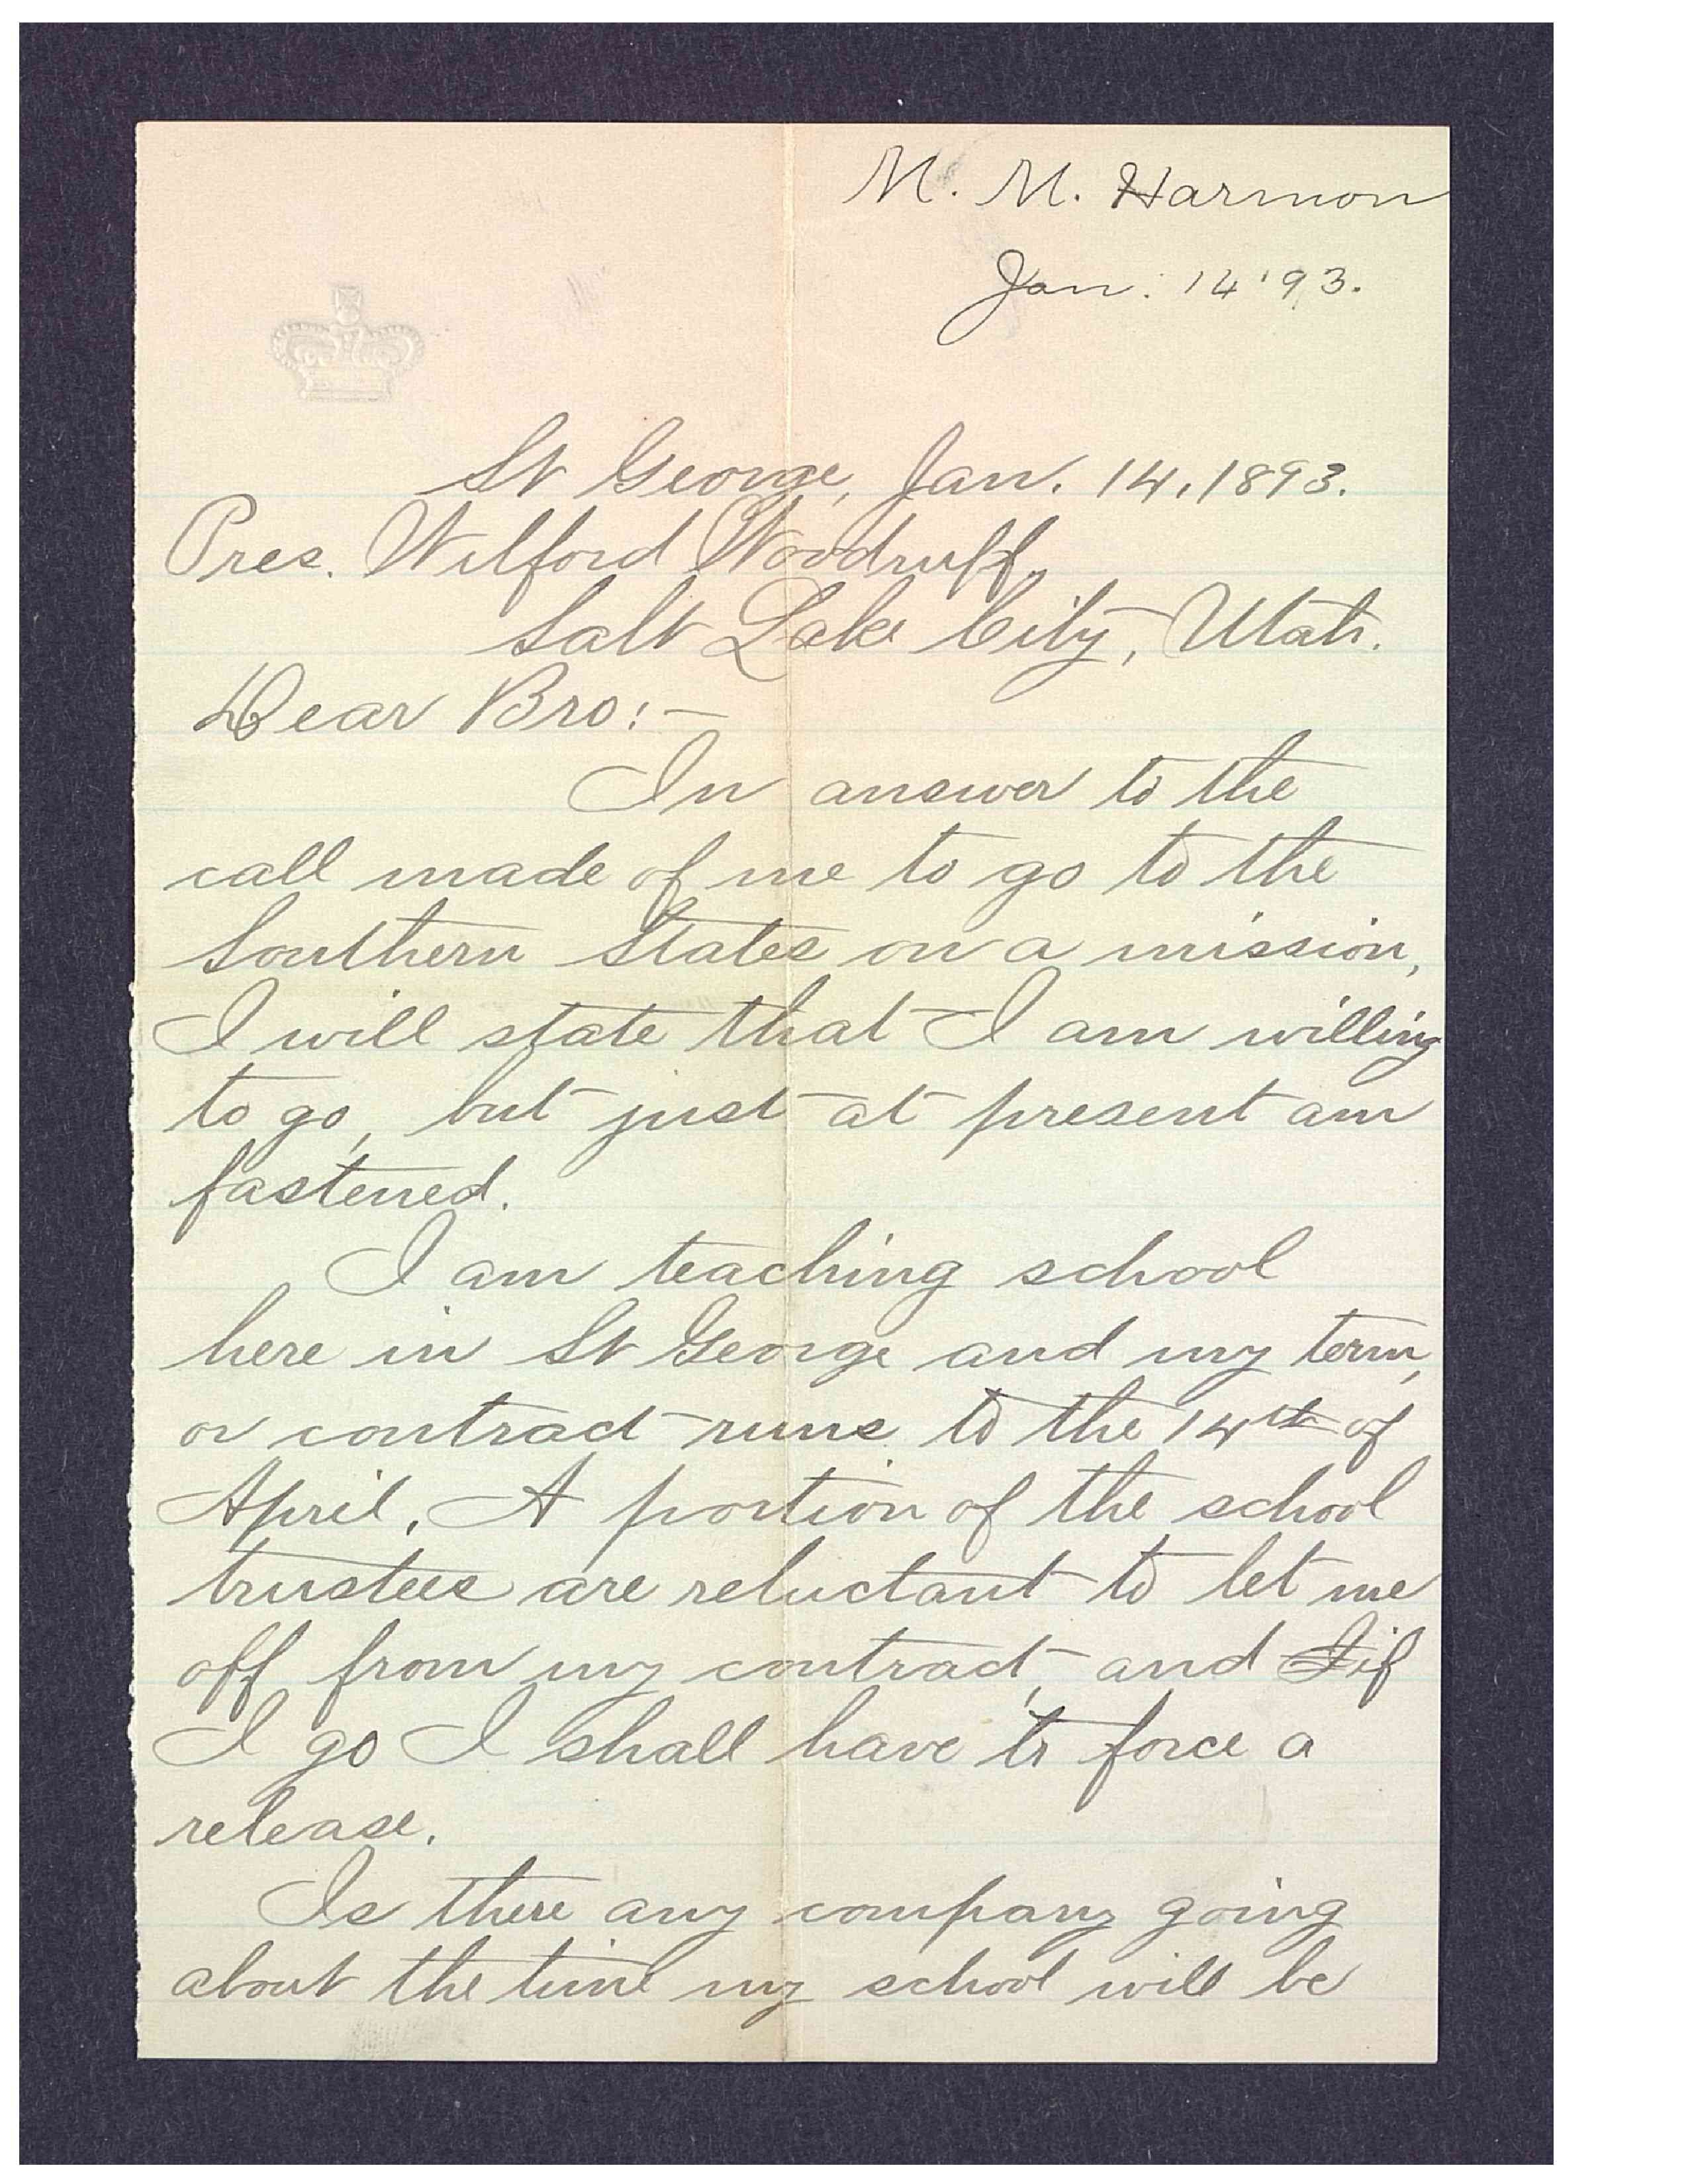 M. M. Harmon
Jan. 14 '93.
St George, Jan. 14, 1893.
Pres. Wilford Woodruff,
Salt Lake City, Utah.
Dear Bro:—
In answer to the
call made of me to go to the
Southern States on a mission,
I will state that I am willing
to go, but just at present am
fastened.
I am teaching school
here in St George and my term,
or contract runs to the 14th of
April. A portion of the school
trustees are reluctant to let me
off from my contract, and I if
I go I shall have to force a
release.
Is there any company going
about the time my school will be